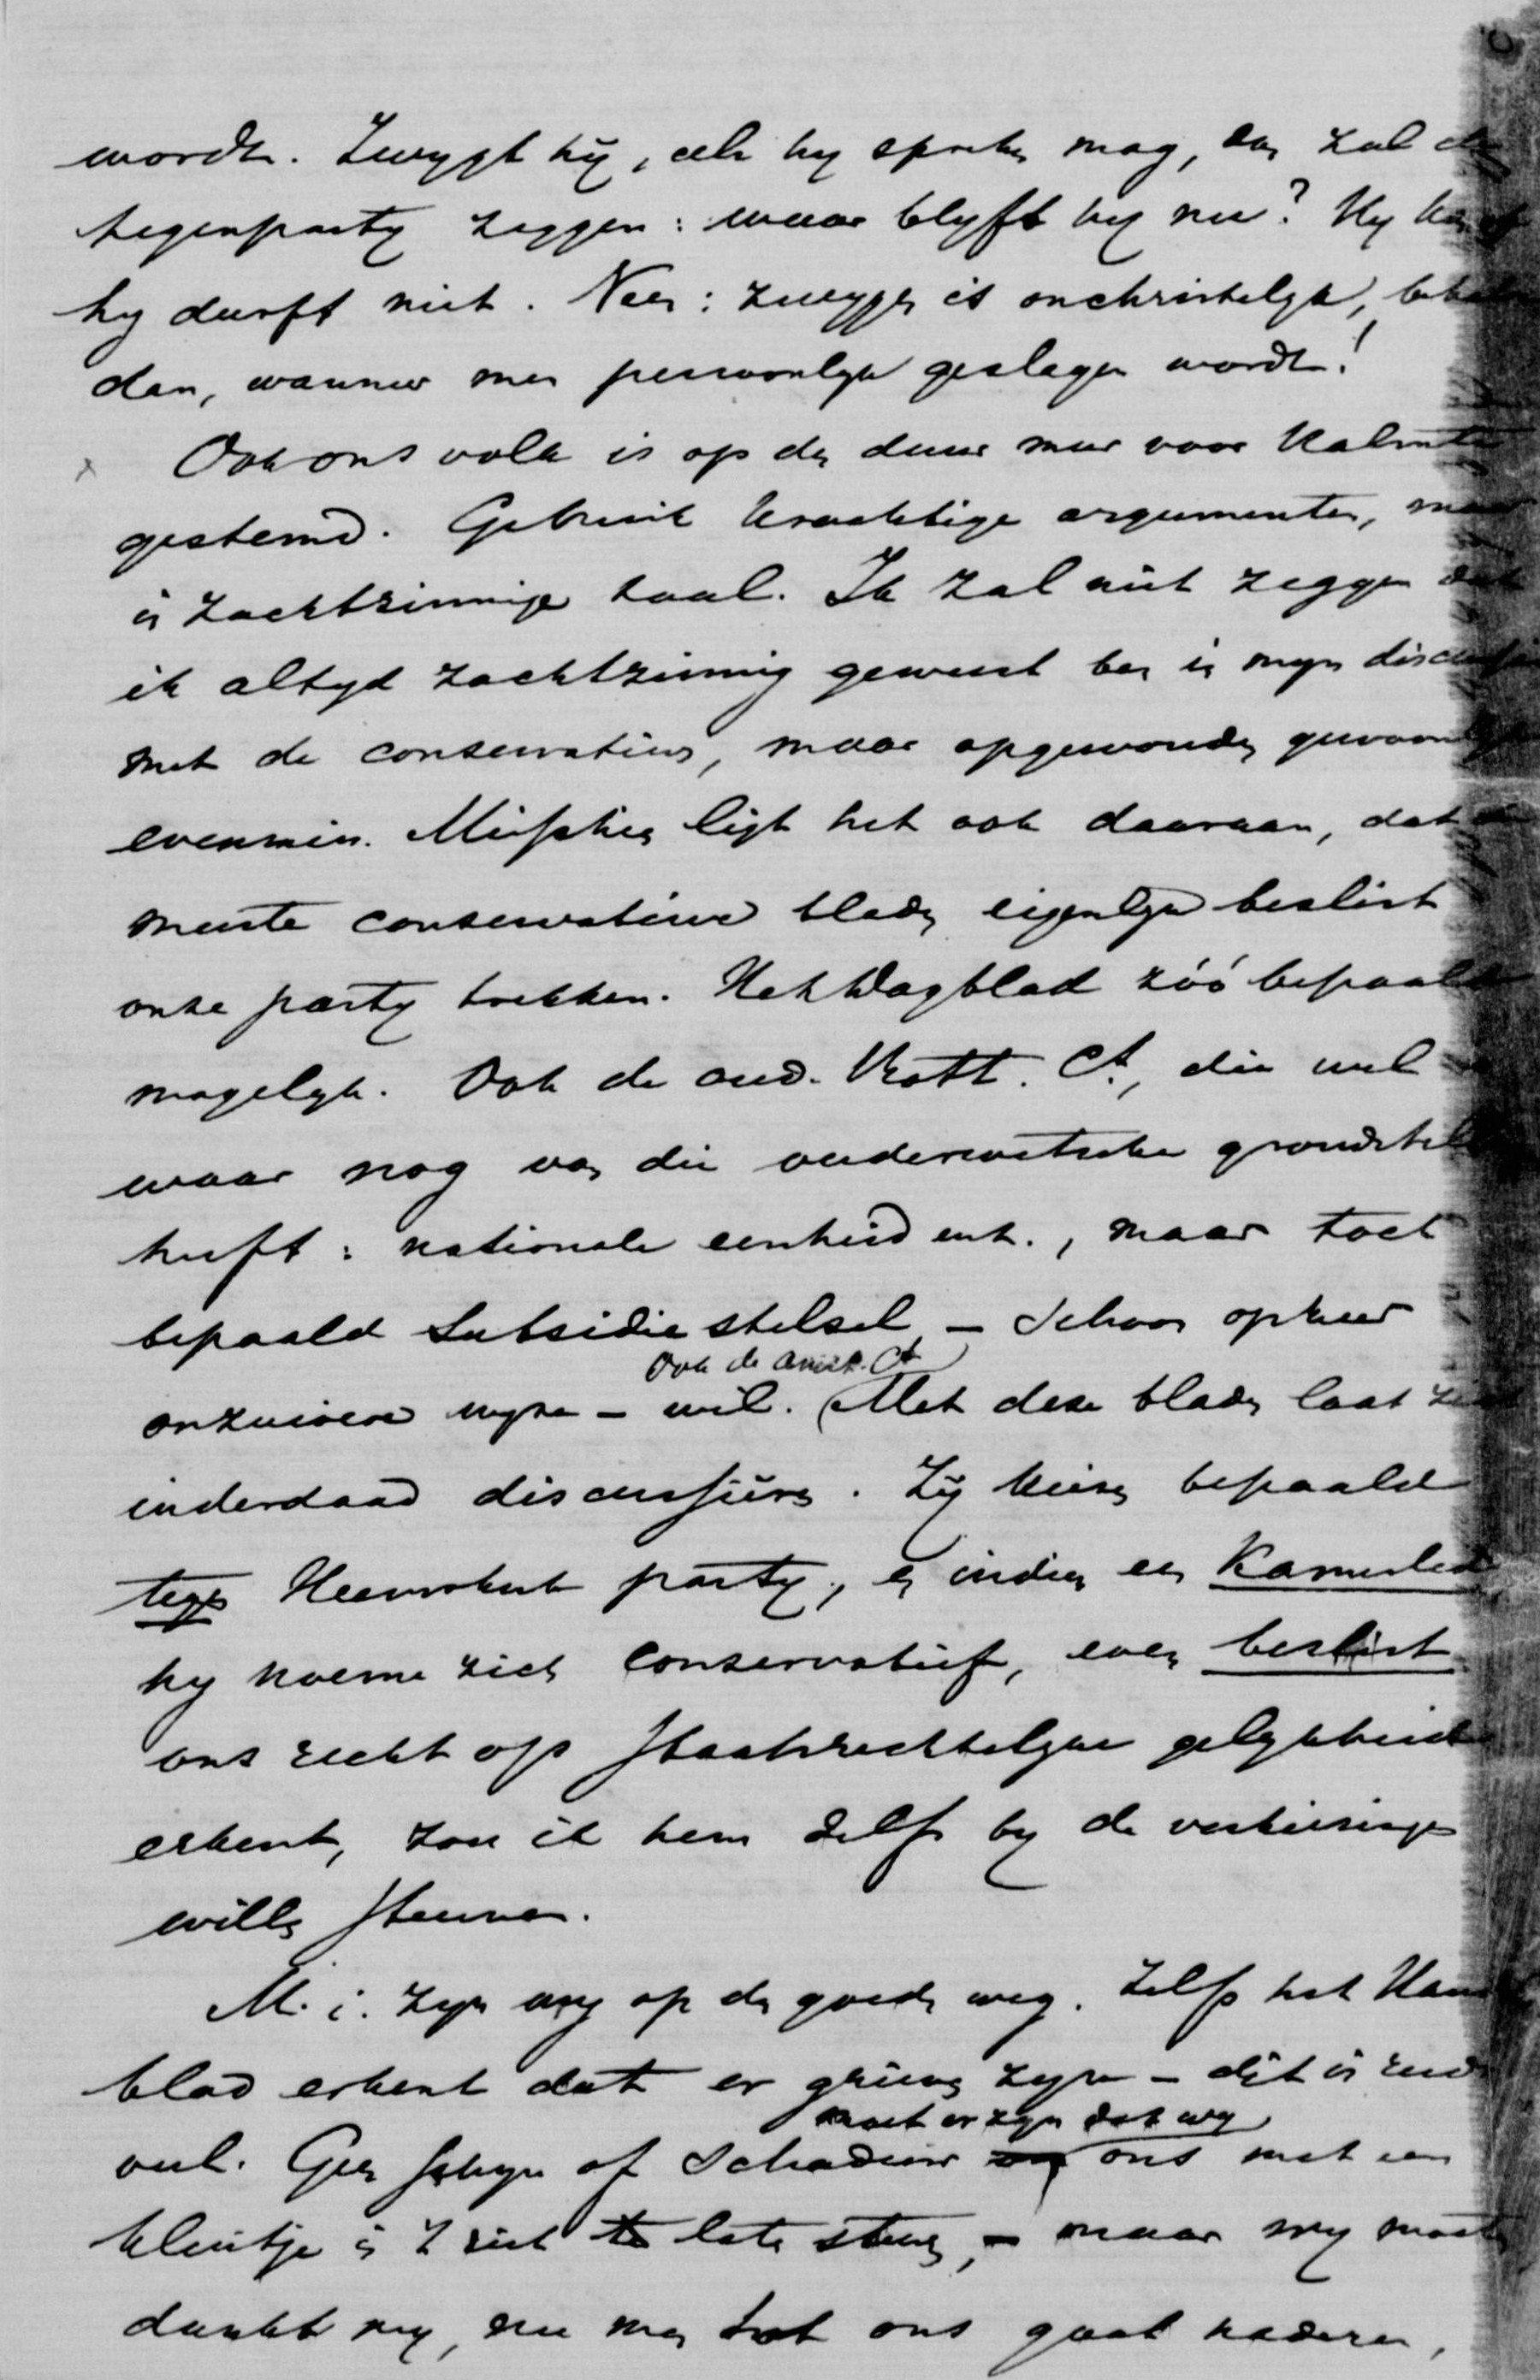 wordt. Zwygt hy, als hy spreken mag, dan zal de
tegenparty zeggen: waar blyft hy nu? Hy kan of
hy durft niet. Neen: zwygen is onchristelyk, behalve
dan, wanneer men persoonlyk geslagen wordt!
Ook ons volk is op den duur meer voor kalmte
gestemd. Gebruik krachtige argumenten, maar
in zachtzinnige taal. Ik zal niet zeggen dat
ik altyd zachtzinnig geweest ben in myn discussie
met de conservatieven, maar opgewonden gewoonlyk
evenmin. Misschien ligt het ook daaraan, dat de
meeste conservatieve bladen eigenlyk beslist
onze party trekken. Het Dagblad zóó bepaald
mogelyk. Ook de oud. Rott. Ct., die wel
waar nog van die ouderwetsche grondstel
heeft: nationale eenheid enz., maar toch
bepaald Subsidie stelsel – schoon op haar
onzuivere wyze – wil. Ook de Amst. Ct
(Met deze bladen laat zich
inderdaad discussieeren. Zy kiezen bepaald
tegen Heemskerk party, en indien een Kamerlid
hy noeme zich conservatief, even beslist
ons recht op staatsrechtelyke gelykheid
erkent, zou ik hem zelfs by de verkiezingen
willen steunen.
M. i. zyn wy op den goeden weg. Zelfs het Han
blad erkent dat er grieven zyn – dit is reeds
moet er zyn dat wy
veel. Geen schyn of schaduw ons met een
kluitje in 't riet te laten sturen, – maar wy moeten
dunkt my, nu men tot ons gaat naderen,